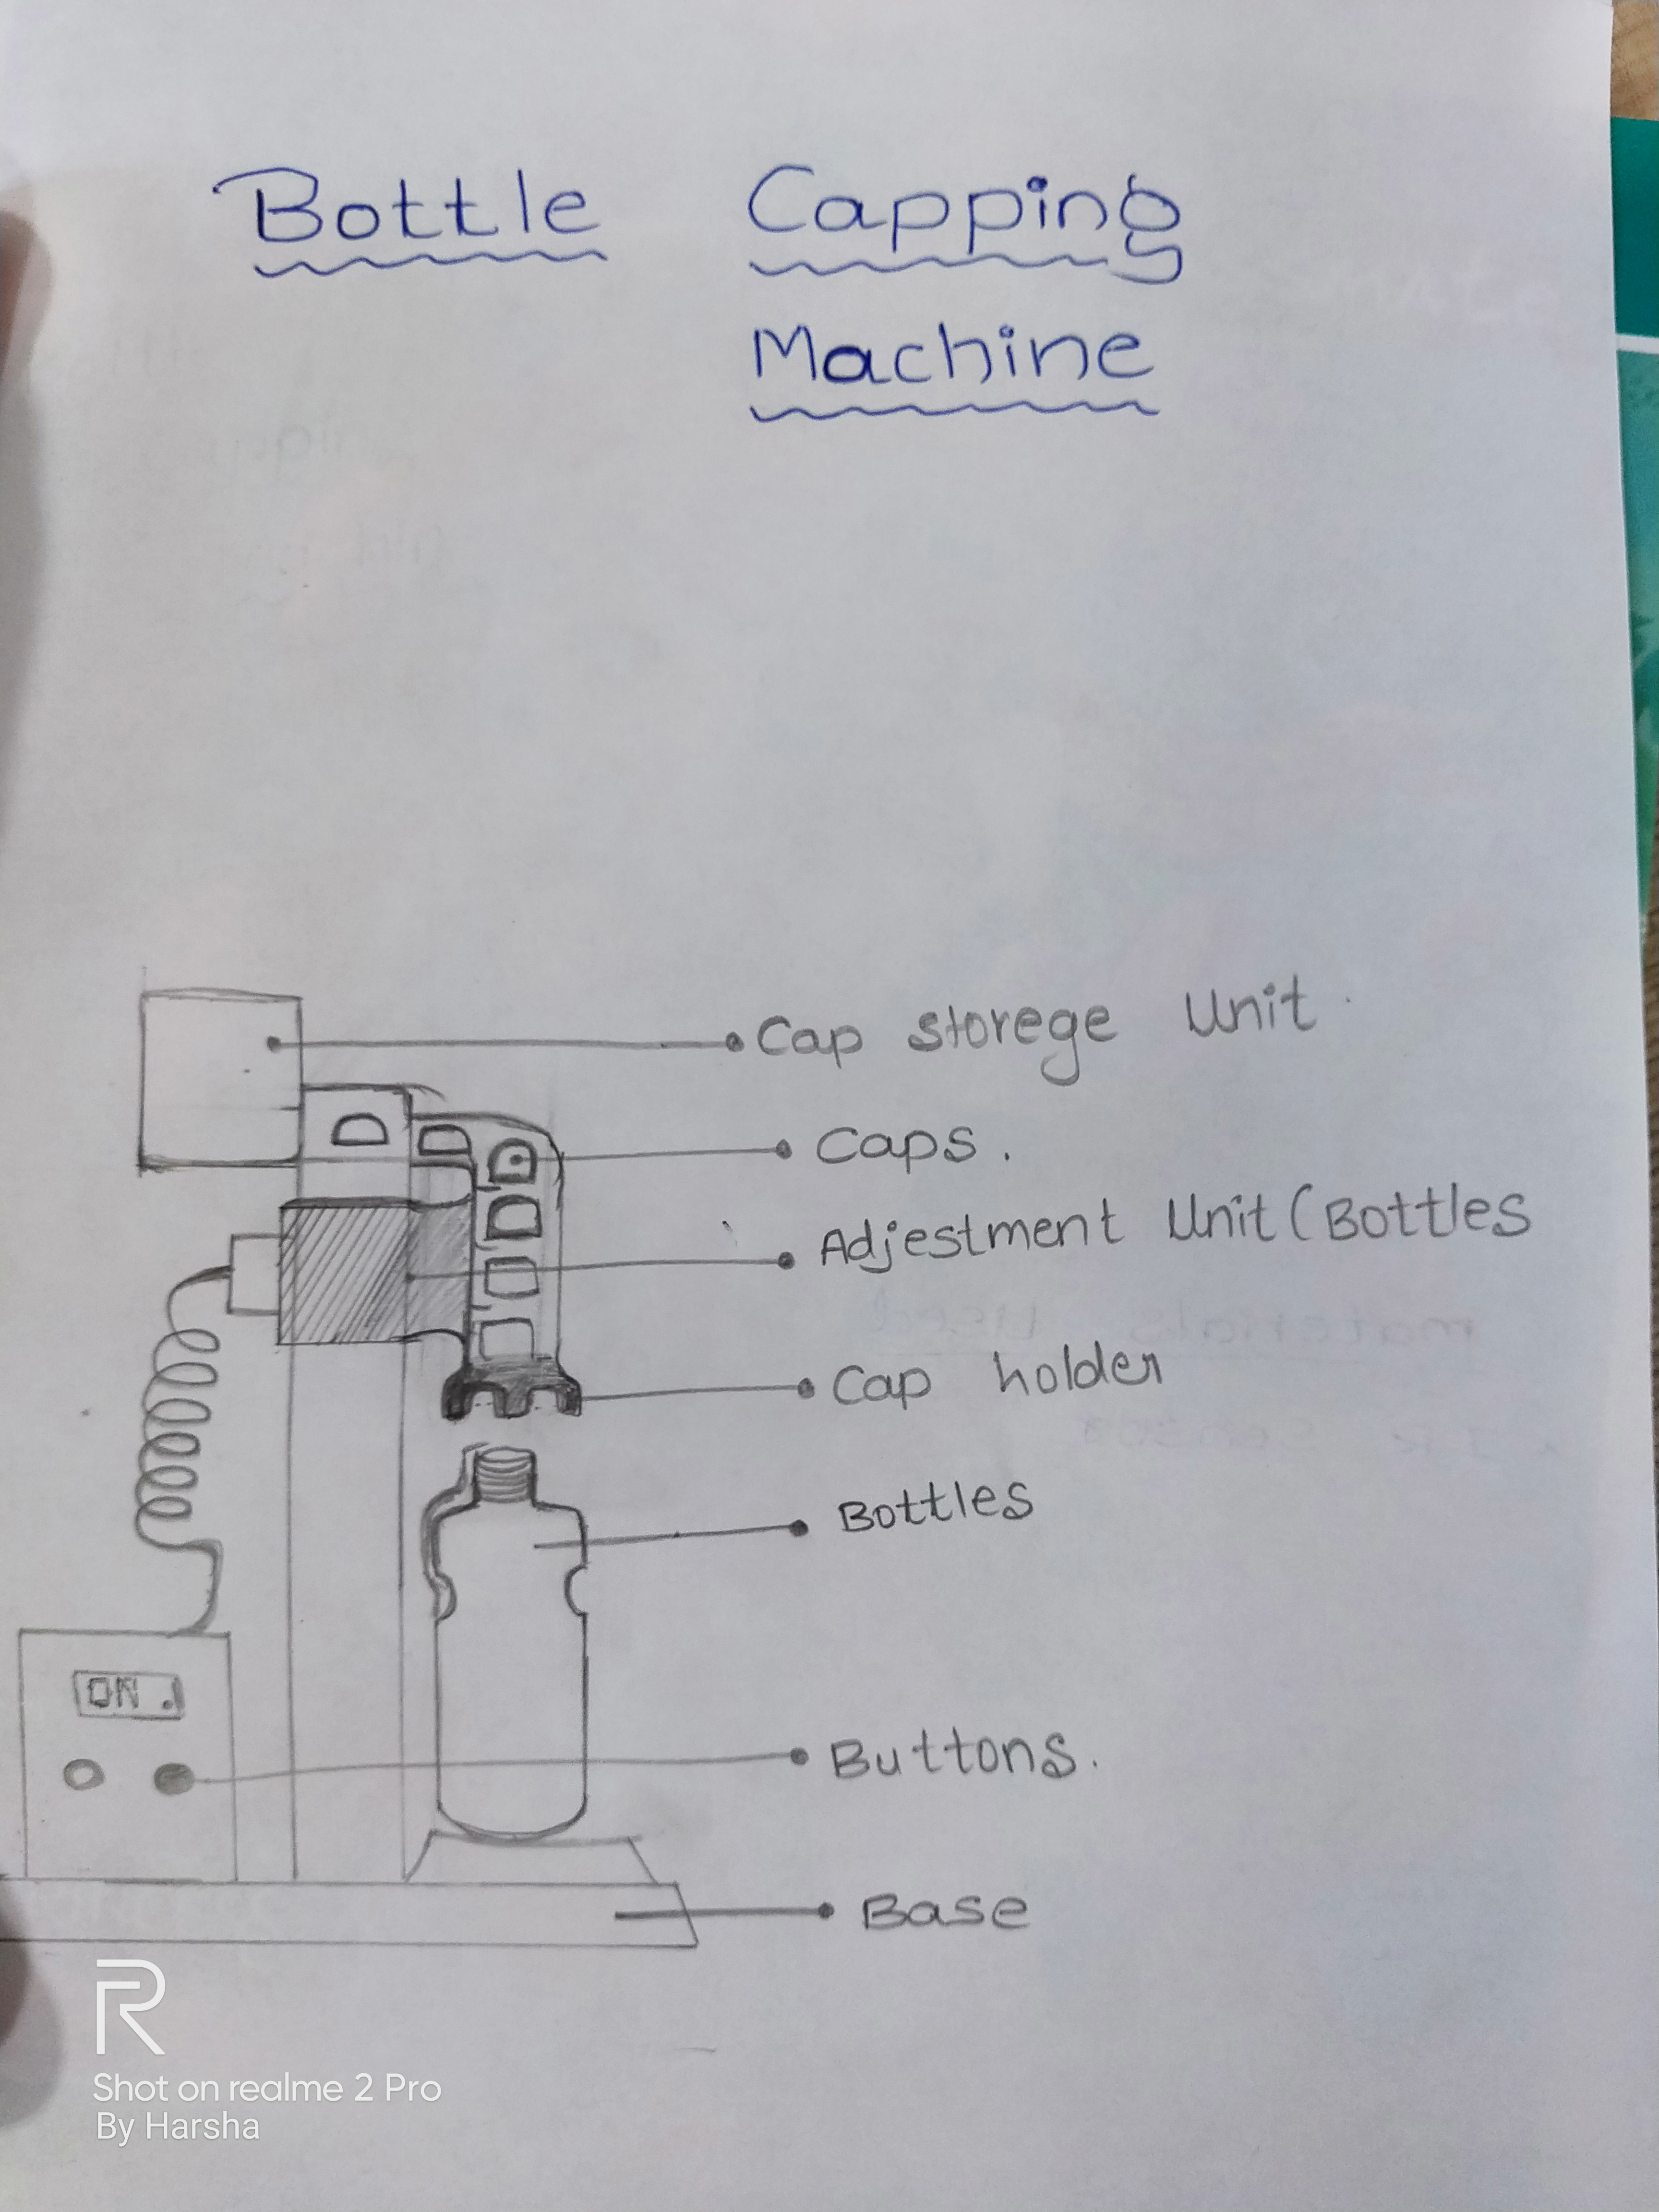 Bottle Capping
Machine
Cap storege Unit.
Caps.
Adjestment Unit (Bottles
Cap holder
Bottles
ON.
Buttons.
Base
Shot on realme 2 Pro
By Harsha